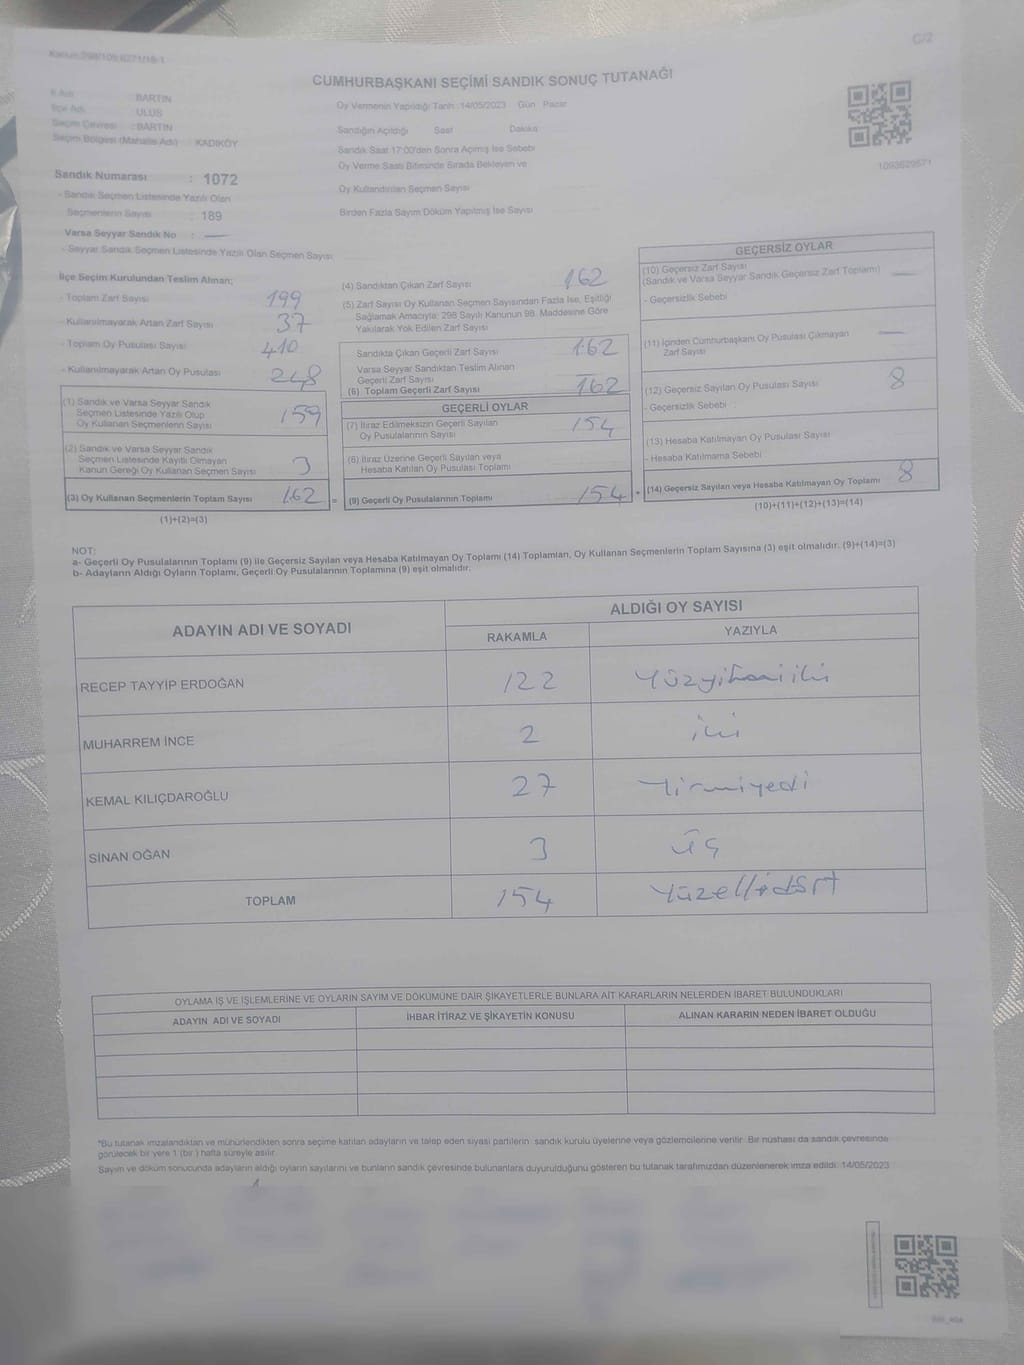 C/2
Kanun:298/105;6271/18-1
CUMHURBAŞKANI SEÇİMİ SANDIK SONUÇ TUTANAĞI
İl Adı : BARTIN
İlçe Adı : ULUS
Seçim Çevresi : BARTIN
Seçim Bölgesi (Mahalle Adı) : KADIKÖY
Sandık Numarası : 1072
- Sandık Seçmen Listesinde Yazılı Olan
Seçmenlerin Sayısı : 189
Varsa Seyyar Sandık No : —
- Seyyar Sandık Seçmen Listesinde Yazılı Olan Seçmen Sayısı:
Oy Vermenin Yapıldığı Tarih :14/05/2023 Gün : Pazar
Sandığın Açıldığı Saat Dakika
Sandık Saat 17:00'den Sonra Açılmış İse Sebebi
Oy Verme Saati Bitiminde Sırada Bekleyen ve
Oy Kullandırılan Seçmen Sayısı
Birden Fazla Sayım Döküm Yapılmış İse Sayısı
1093629571
İlçe Seçim Kurulundan Teslim Alınan;
- Toplam Zarf Sayısı 199
- Kullanılmayarak Artan Zarf Sayısı 37
- Toplam Oy Pusulası Sayısı 410
- Kullanılmayarak Artan Oy Pusulası 248
(1) Sandık ve Varsa Seyyar Sandık
Seçmen Listesinde Yazılı Olup
Oy Kullanan Seçmenlerin Sayısı 159
(2) Sandık ve Varsa Seyyar Sandık
Seçmen Listesinde Kayıtlı Olmayan
Kanun Gereği Oy Kullanan Seçmen Sayısı 3
(3) Oy Kullanan Seçmenlerin Toplam Sayısı 162 =
(1)+(2)=(3)
(4) Sandıktan Çıkan Zarf Sayısı 162
(5) Zarf Sayısı Oy Kullanan Seçmen Sayısından Fazla İse, Eşitliği
Sağlamak Amacıyla; 298 Sayılı Kanunun 98. Maddesine Göre
Yakılarak Yok Edilen Zarf Sayısı
Sandıkta Çıkan Geçerli Zarf Sayısı 162
Varsa Seyyar Sandıktan Teslim Alınan
Geçerli Zarf Sayısı —
(6) Toplam Geçerli Zarf Sayısı 162
GEÇERLİ OYLAR
(7) İtiraz Edilmeksizin Geçerli Sayılan
Oy Pusulalarının Sayısı 154
(8) İtiraz Üzerine Geçerli Sayılan veya
Hesaba Katılan Oy Pusulası Toplamı
(9) Geçerli Oy Pusulalarının Toplamı 154 +
GEÇERSİZ OYLAR
(10) Geçersiz Zarf Sayısı
(Sandık ve Varsa Seyyar Sandık Geçersiz Zarf Toplamı) —
- Geçersizlik Sebebi
(11) İçinden Cumhurbaşkanı Oy Pusulası Çıkmayan —
Zarf Sayısı
(12) Geçersiz Sayılan Oy Pusulası Sayısı 8
- Geçersizlik Sebebi :
(13) Hesaba Katılmayan Oy Pusulası Sayısı
- Hesaba Katılmama Sebebi
(14) Geçersiz Sayılan veya Hesaba Katılmayan Oy Toplamı 8
(10)+(11)+(12)+(13)=(14)
NOT:
a- Geçerli Oy Pusulalarının Toplamı (9) ile Geçersiz Sayılan veya Hesaba Katılmayan Oy Toplamı (14) Toplamları, Oy Kullanan Seçmenlerin Toplam Sayısına (3) eşit olmalıdır. (9)+(14)=(3)
b- Adayların Aldığı Oyların Toplamı, Geçerli Oy Pusulalarının Toplamına (9) eşit olmalıdır.
ADAYIN ADI VE SOYADI ALDIĞI OY SAYISI
RAKAMLA YAZIYLA
RECEP TAYYİP ERDOĞAN 122 Yüzyirmiiki
MUHARREM İNCE 2 iki
KEMAL KILIÇDAROĞLU 27 Yirmiyedi
SİNAN OĞAN 3 üç
TOPLAM 154 Yüzellidört
OYLAMA İŞ VE İŞLEMLERİNE VE OYLARIN SAYIM VE DÖKÜMÜNE DAİR ŞİKAYETLERLE BUNLARA AİT KARARLARIN NELERDEN İBARET BULUNDUKLARI
ADAYIN ADI VE SOYADI İHBAR İTİRAZ VE ŞİKAYETİN KONUSU ALINAN KARARIN NEDEN İBARET OLDUĞU
*Bu tutanak imzalandıktan ve mühürlendikten sonra seçime katılan adayların ve talep eden siyasi partilerin sandık kurulu üyelerine veya gözlemcilerine verilir. Bir nüshası da sandık çevresinde
görülecek bir yere 1 (bir) hafta süreyle asılır.
Sayım ve döküm sonucunda adayların aldığı oyların sayılarını ve bunların sandık çevresinde bulunanlara duyurulduğunu gösteren bu tutanak tarafımızdan düzenlenerek imza edildi. 14/05/2023